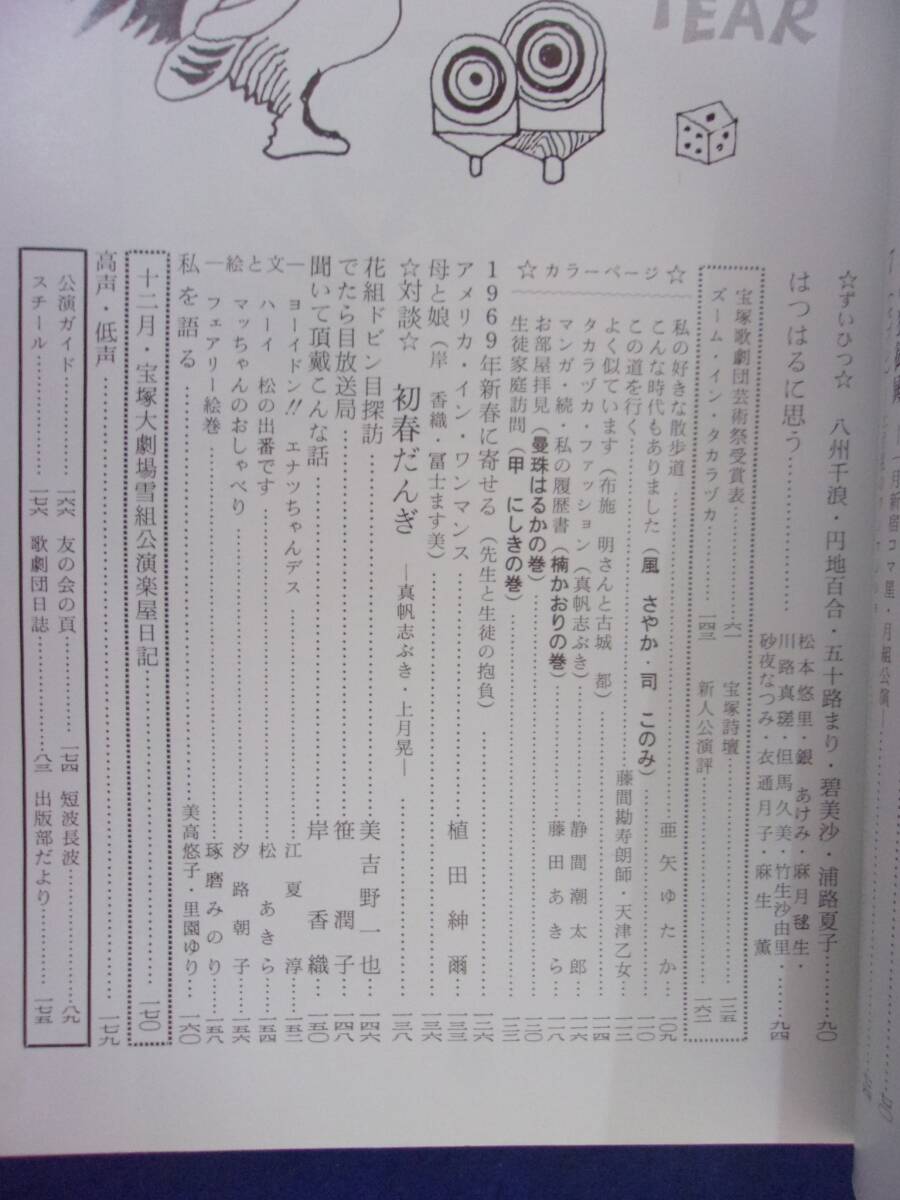 YEAR
☆ずいひつ☆ 八州千浪・円地百合・五十路まり・碧美沙・浦路夏子……九〇
はつはるに思う……
松本悠里・銀 あけみ・麻月毬生・
川路真瑳・但馬久美・竹生沙由里
砂夜なつみ・衣通月子・麻生 薫……九四
宝塚歌劇団芸術祭受賞表……六一 宝塚詩壇……一三五
ズーム・イン・タカラヅカ……一四三 新人公演評……一六二
☆カラーページ☆
私の好きな散歩道……亜矢ゆたか……一〇九
こんな時代もありました(風 さやか・司 このみ)……一一〇
この道を行く……藤間勘寿朗師・天津乙女……一一二
よく似ています(布施 明さんと古城 都)……一一四
タカラヅカ・ファッション(真帆志ぶき)……静間潮太郎……一一六
マンガ・続・私の履歴書(楠かおりの巻)……藤田あきら……一一八
お部屋拝見(曼珠はるかの巻)……一二〇
生徒家庭訪問(甲 にしきの巻)……一二二
1969年新春に寄せる(先生と生徒の抱負)……一二六
アメリカ・イン・ワンマンス……植田紳爾……一三三
母と娘(岸 香織・冨士ます美)……一三六
☆対談☆ 初春だんぎ ―真帆志ぶき・上月晃―……一三八
花組ドビン目探訪……美吉野一也……一四六
でたら目放送局……笹潤子……一四八
聞いて頂戴こんな話……岸香織……一五〇
―絵と文―
ヨーイドン!! エナツちゃんデス……江夏淳……一五二
ハーイ 松の出番です……松あきら……一五四
マッちゃんのおしゃべり……汐路朝子……一五六
フェアリー絵巻……琢磨みのり……一五八
私を語る……美高悠子・里園ゆり……一六〇
十二月・宝塚大劇場雪組公演楽屋日記……一七〇
高声・低声……一七九
公演ガイド……一六六 友の会の頁……一七四 短波長波……八九
スチール……一七六 歌劇団日誌……八三 出版部だより……一七五